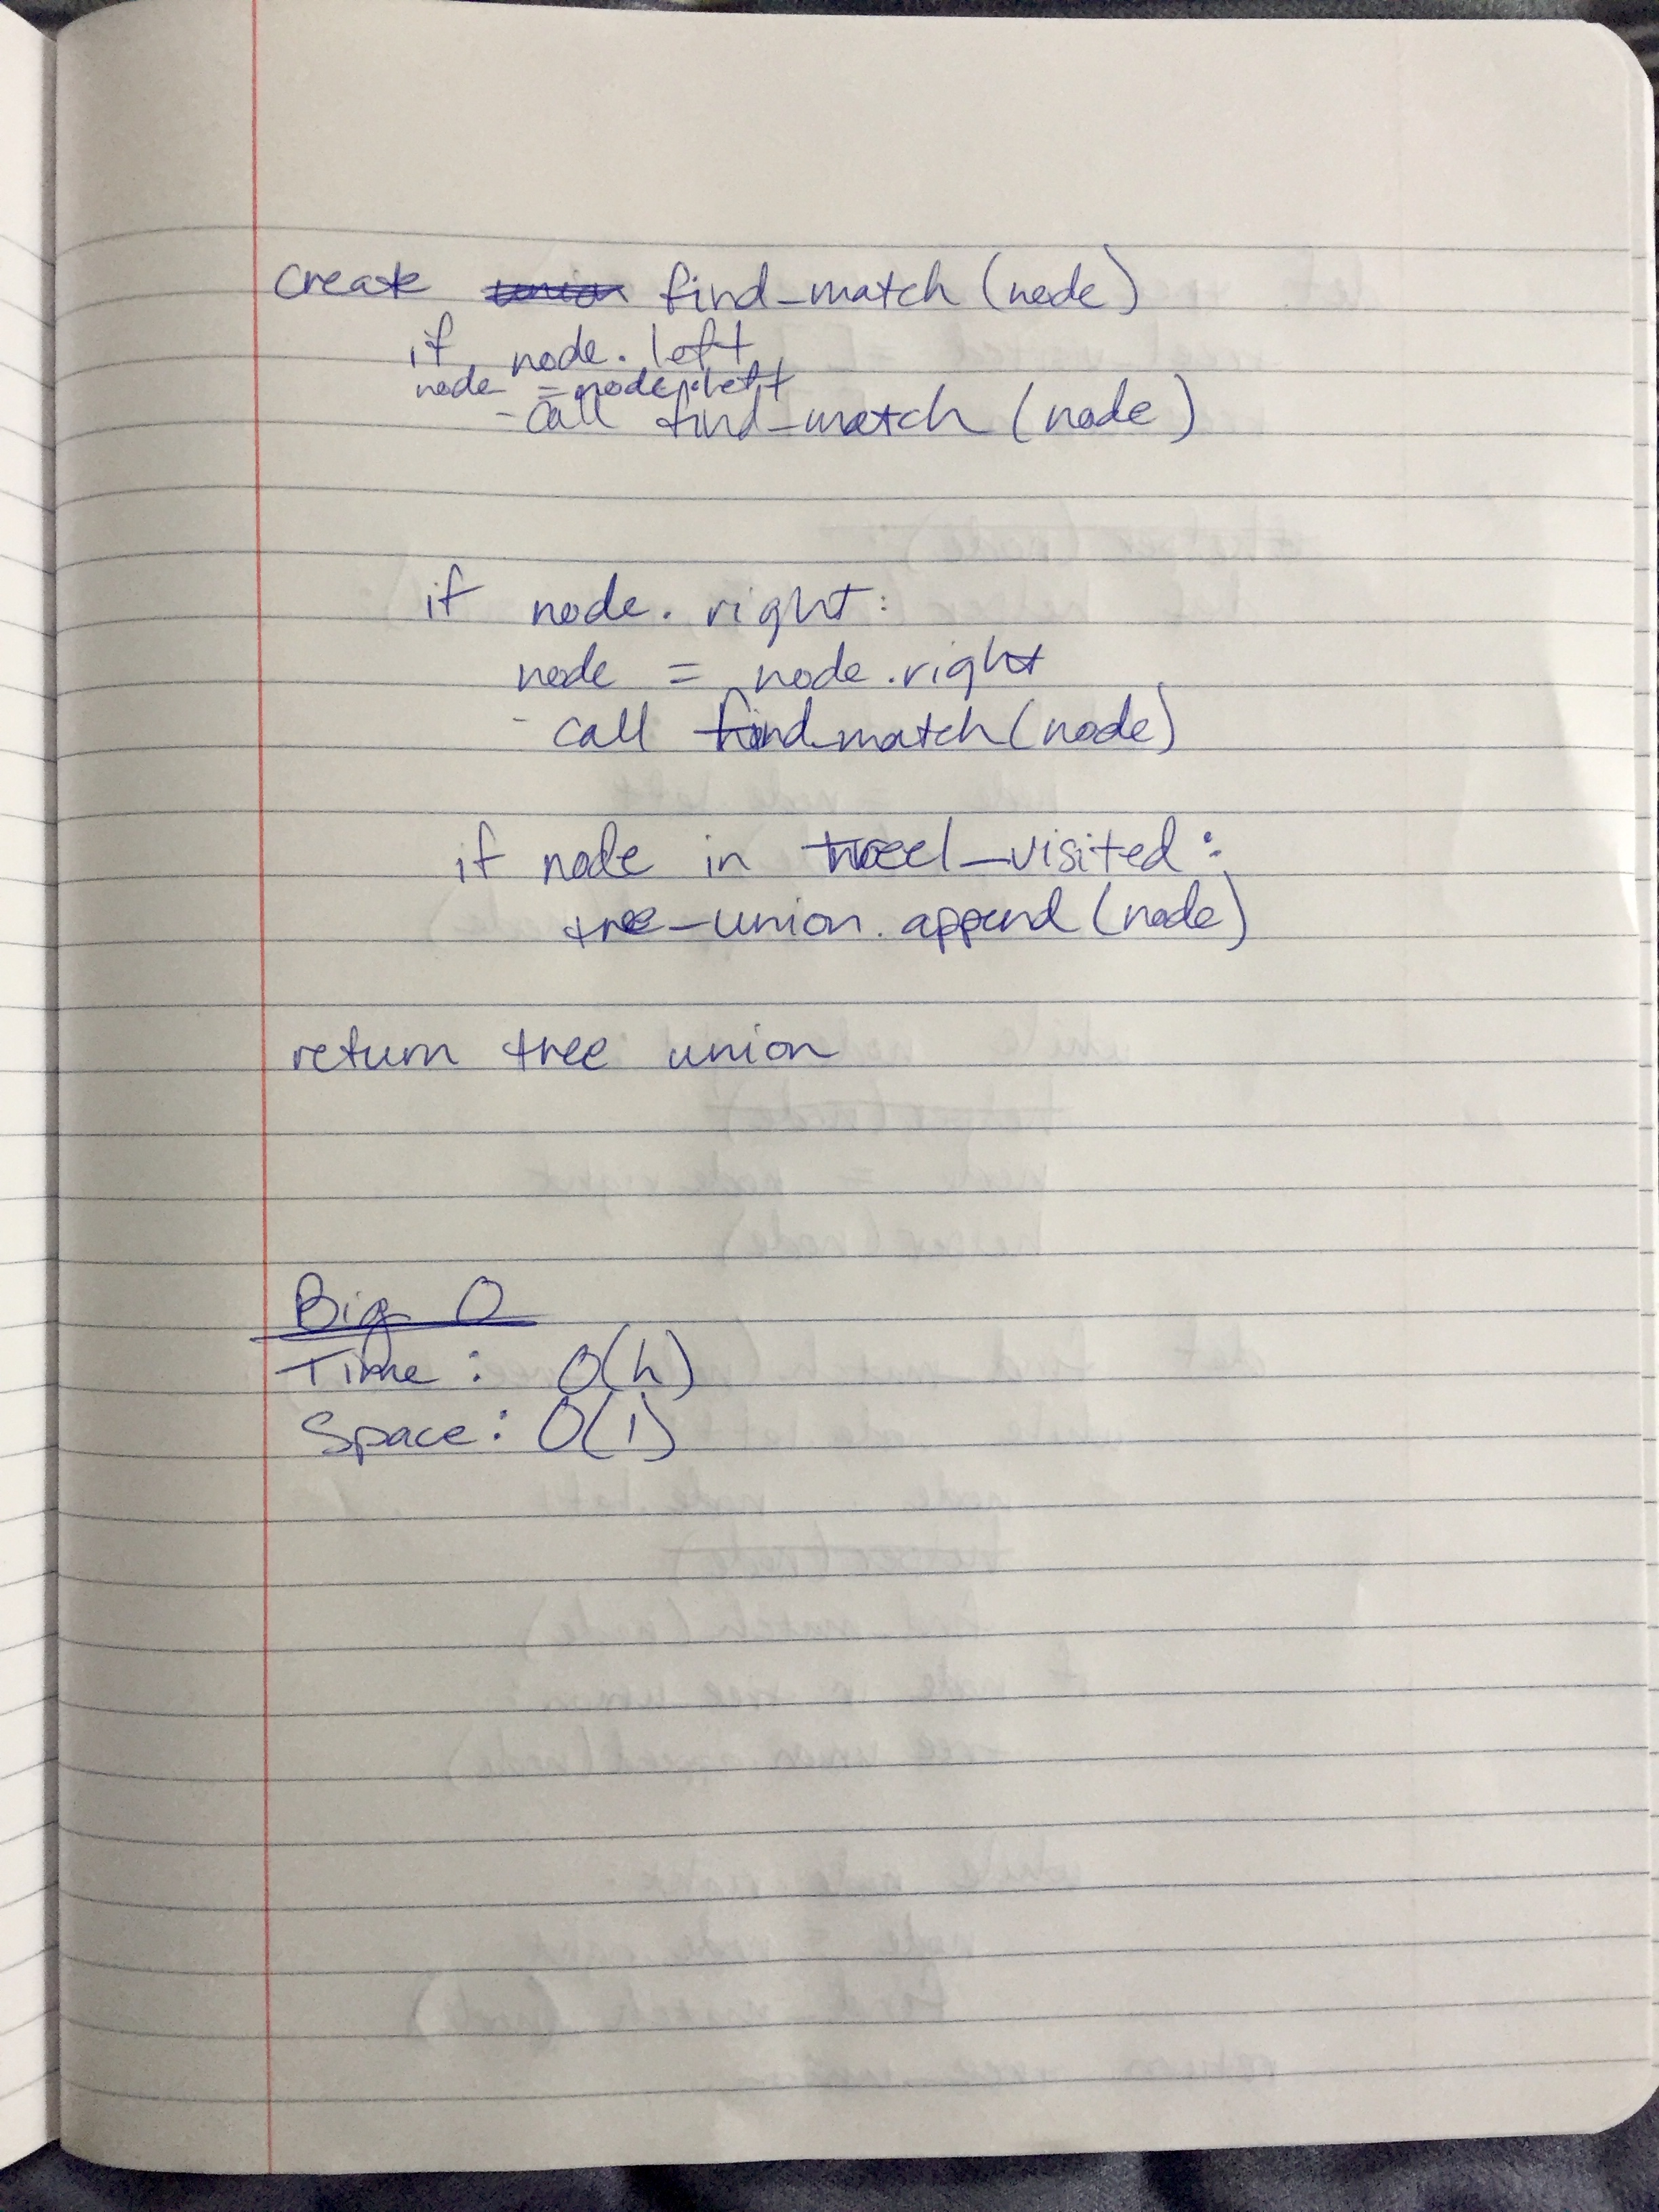 create find_match (node)
if node.left
node = node.left
- call find_match (node)
if node.right:
node = node.right
- call find_match (node)
if node in tree1_visited:
tree_union.append (node)
return tree union
Big O
Time: O(h)
Space: O(1)